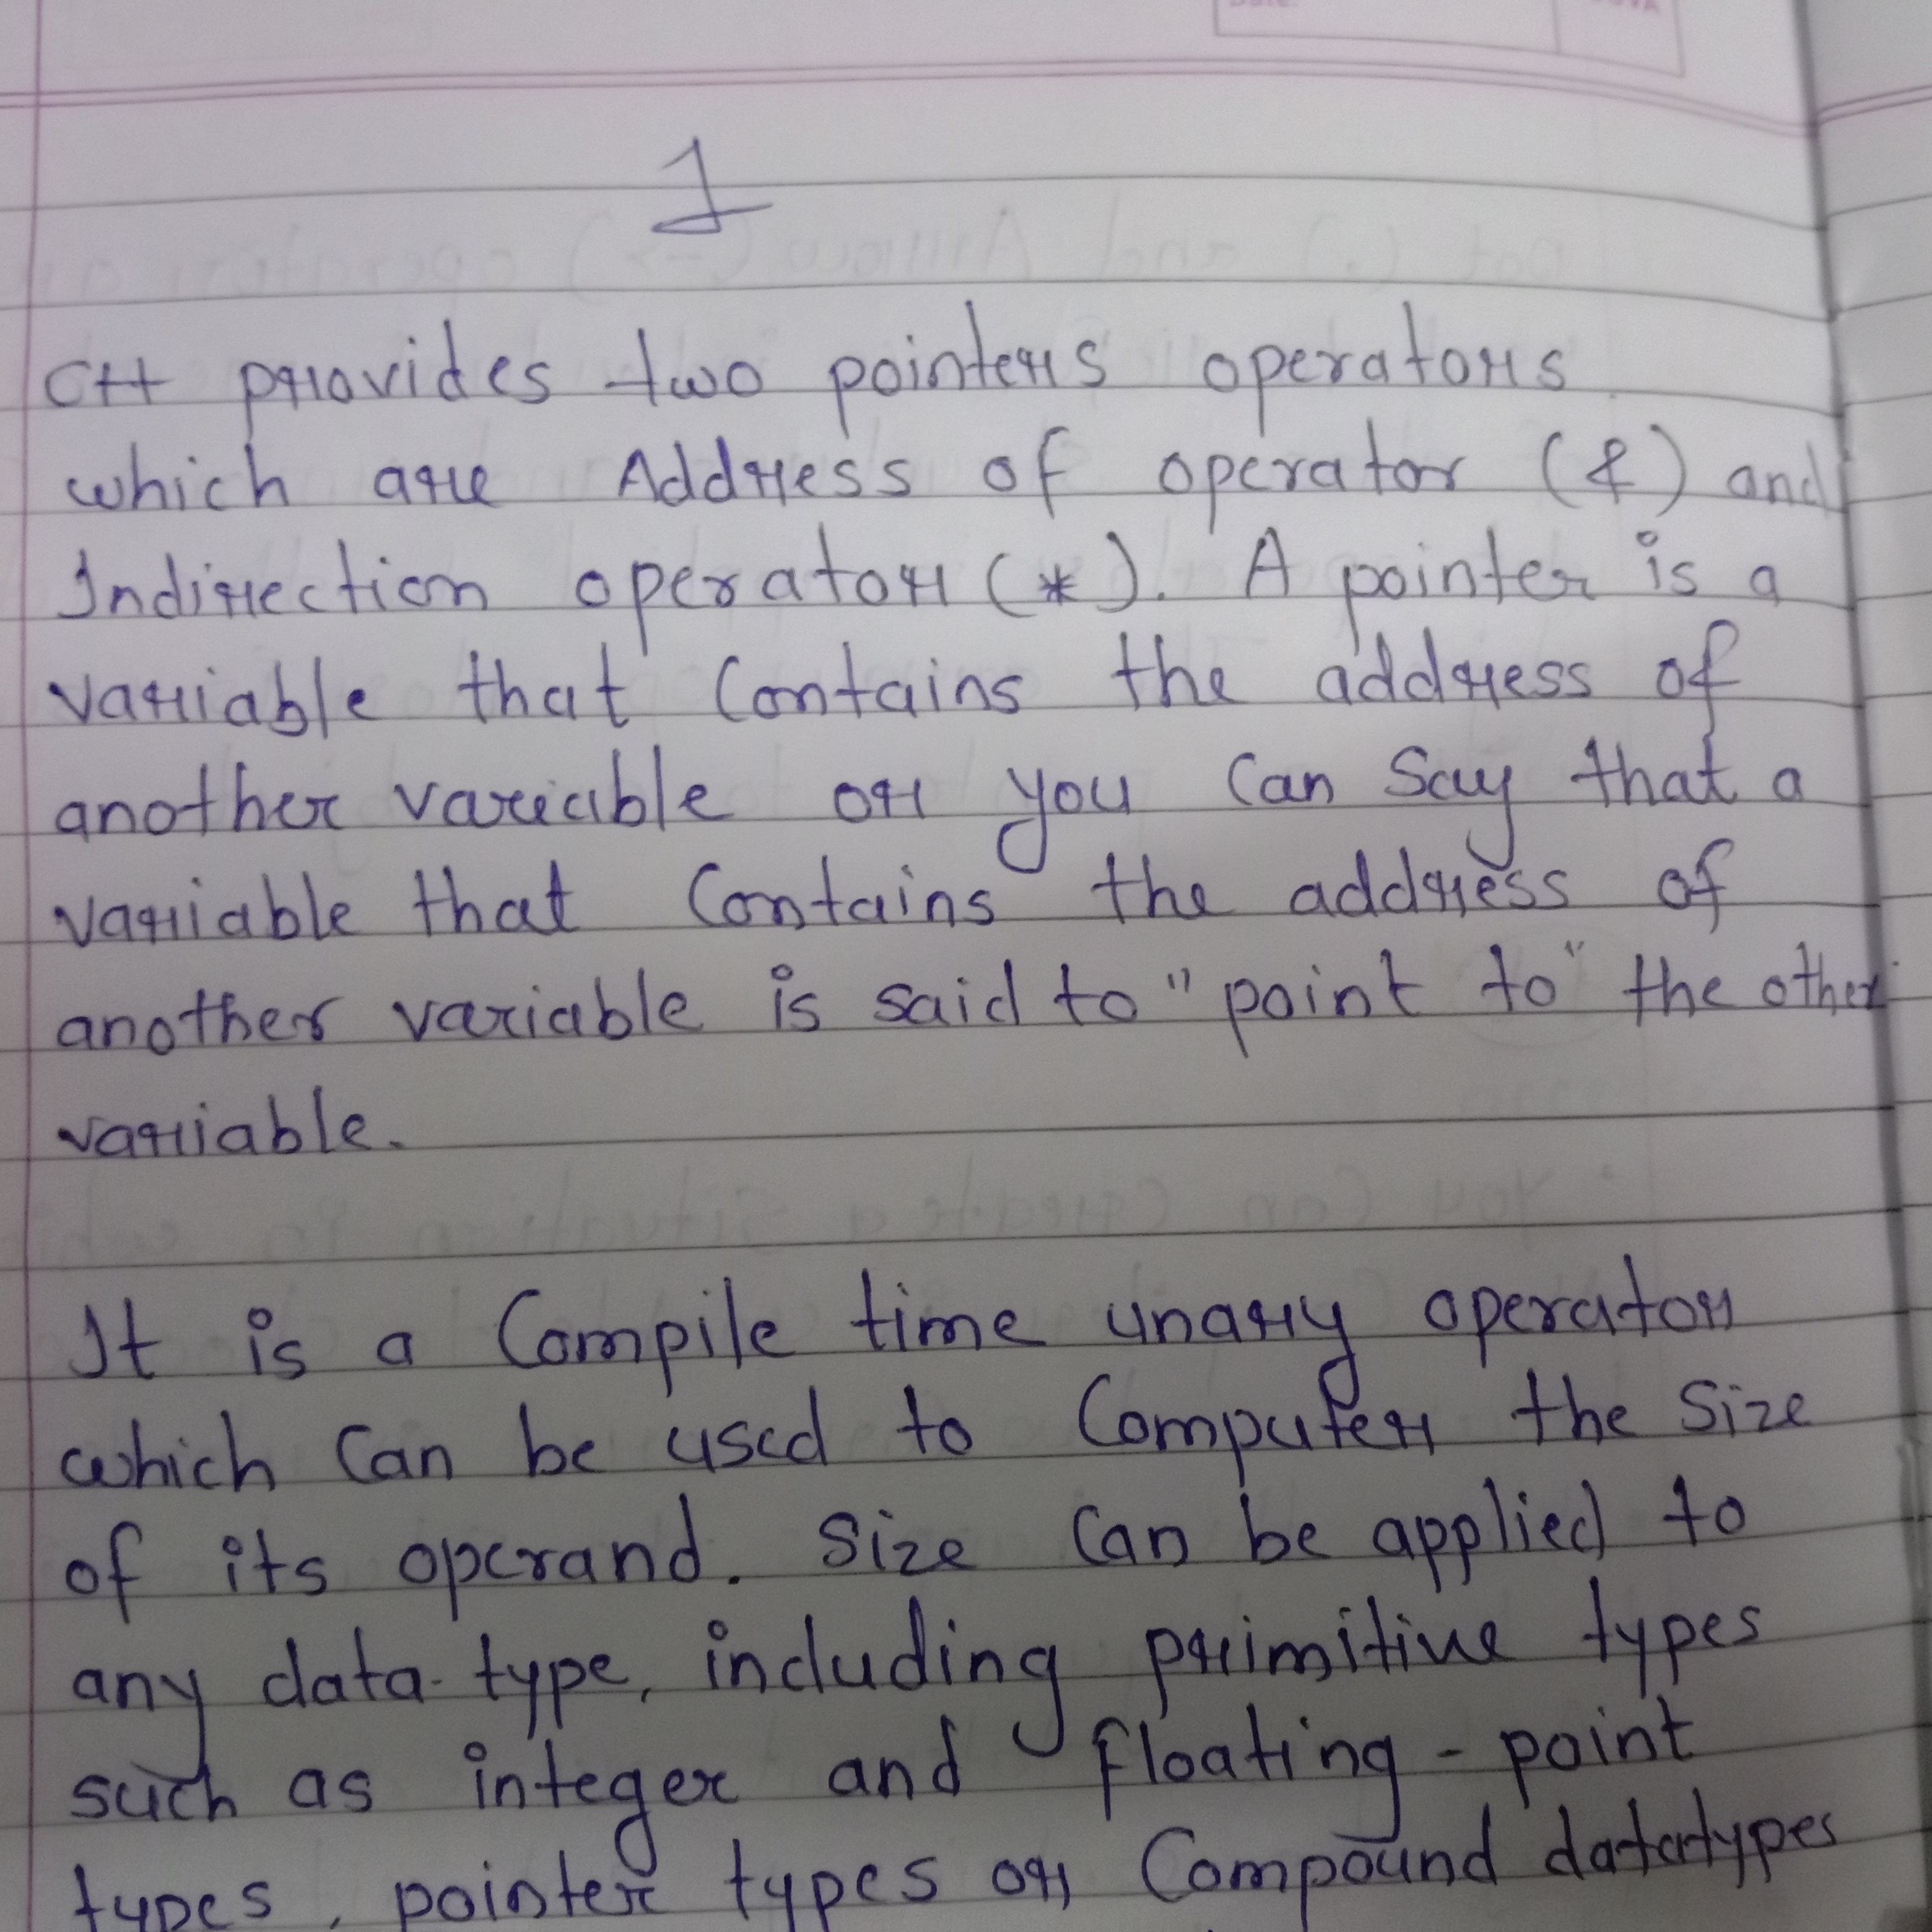 1
C++ provides two pointers operators
which are Address of operator (&) and
Indirection operator (*). A pointer is a
variable that Contains the address of
another variable or you Can Say that a
variable that Contains the address of
another variable is said to "point to" the other
variable.
It is a Compile time unary operator
which Can be used to Computer the Size
of its operand. Size Can be applied to
any data-type, including primitive types
such as integer and floating-point
types, pointer types or Compound datatypes